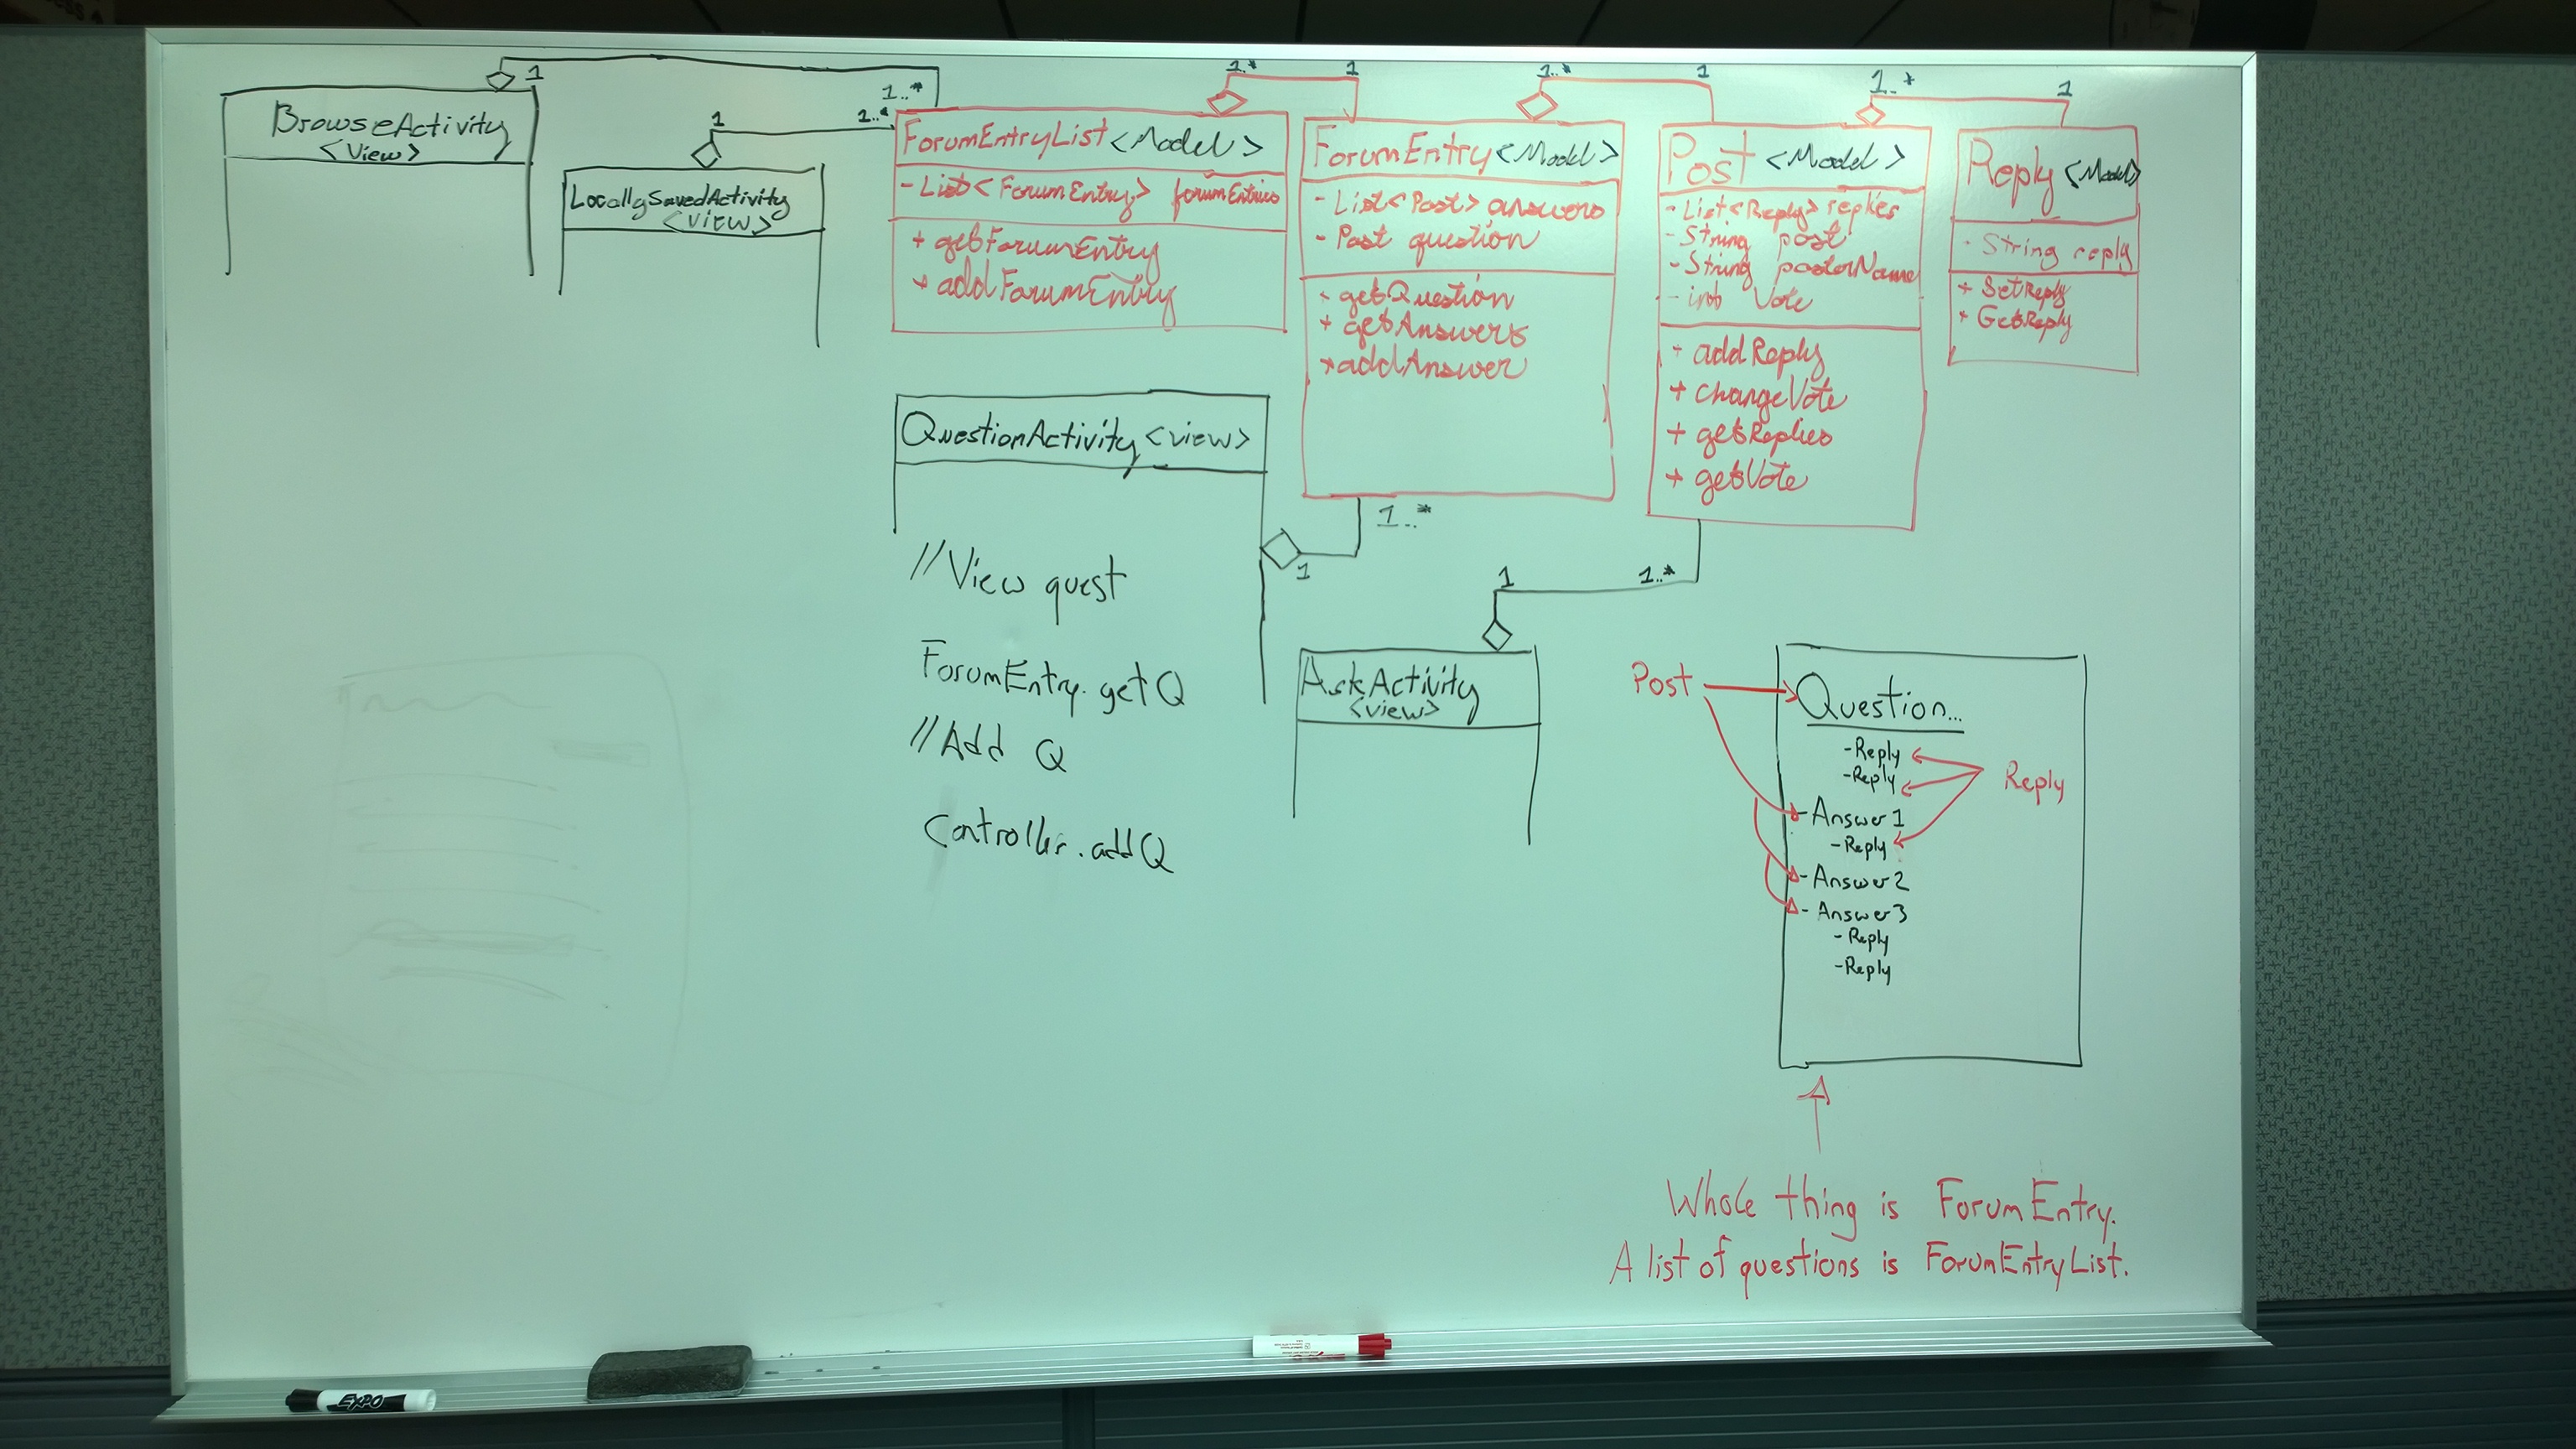 1
BrowseActivity
<View>
1
1..*
1..*
LocallySavedActivity
<View>
1..*
1
ForumEntryList <Model>
- List<ForumEntry> forumEntries
+ getForumEntry
+ addForumEntry
1..*
1
ForumEntry <Model>
- List<Post> answers
- Post question
+ getQuestion
+ getAnswers
+ addAnswer
1..*
1
Post <Model>
- List<Reply> replies
- String post
- String posterName
- int Vote
+ addReply
+ changeVote
+ getReplies
+ getVote
Reply <Model>
- String reply
+ SetReply
+ GetReply
QuestionActivity <view>
1..*
1
//View quest
ForumEntry.getQ
//Add Q
Controller.addQ
1
1..*
AskActivity
<view>
Post
Question...
- Reply
- Reply
Reply
- Answer 1
- Reply
- Answer 2
- Answer 3
- Reply
- Reply
Whole thing is ForumEntry.
A list of questions is ForumEntryList.
EXPO